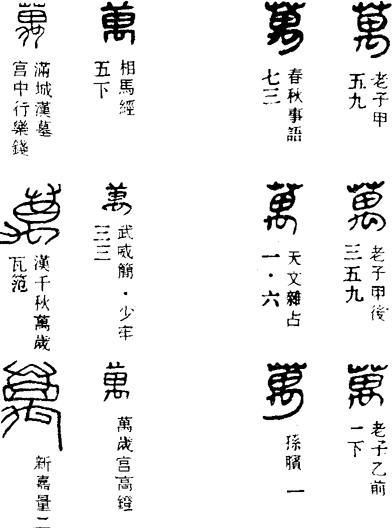 萬
老子甲
五九
萬
老子甲後
三五九
萬
老子乙前
一下
萬
春秋事語
七三
萬
天文雜占
一・六
萬
孫臏 一
萬
相馬經
五下
萬
武威簡・少牢
三三
萬
萬歲宮高鐙
萬
滿城漢墓
宮中行樂錢
萬
漢千秋萬歲
瓦范
萬
新嘉量二